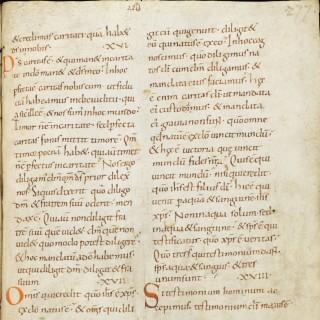 & credimus caritati quā hab& ds̄
in nobis · XVI ·
Ds̄ caritas ē & qui man& in caritate
in dō man& & ds̄ in eo · In hoc
pfecta ē caritas nobiscum · ut fiduciā
habeamus in die iudicii · quia
sicut ille ē & nos sumus in hoc mundo ·
Timor nō ē in caritate · sed pfecta
caritas foras mittit timorē · Qm̄
timor poenā hab& · qui autē timet
nō ē pfectus in caritate · Nos ergo
diligam dm̄ qm̄ ds̄ prior dilex
nos · Si quis dixerit quō diligo
dm̄ & fratrem suū oderit · men
dax ē · Qui enī non diligit fra
trē suū quē uid& · dm̄ quē non
uid& quō modo potest diligere ·
& hoc mandatū abō habemus ·
ut qui diligit dm̄ · diligat & fra
trē suū · XVII ·
Omnis qui credit quō ihs̄ ē xps̄ ·
ex dō natus ē · & omis qui dili
git eū qui genuit · diligit &
eū qui natus ē ex eo · In hoc cog
noscimus quō diligimus na
tos dī cum dm̄ diligamus · &
mandata eius faciamus · Haec
ē enim caritas dī · ut mandata
eī custodiamus · & mandata
eī grauia non sunt · quō omne
qd̄ natū ē ex dō uincit mundū ·
& haec ē uictoria quę uincit
mundū fides nr̄a · Quis ē qui
uincit mundū · nisi qui credit
quō ihs̄ est filius dī · Hic ē qui
uenit p aquā & sanguinē ihs̄
xps̄ · Non in aqua solum sed in
aqua & sanguine · & sps̄ ē qui
testificatur quō xps̄ ē ueritas ·
Quō tres sunt qui testimoniū dant ·
sps̄ aqua & sanguis · & tres
unum sunt · XVIII ·
Si testimonium hominum ac
cepimus · testimonium dī maius ē